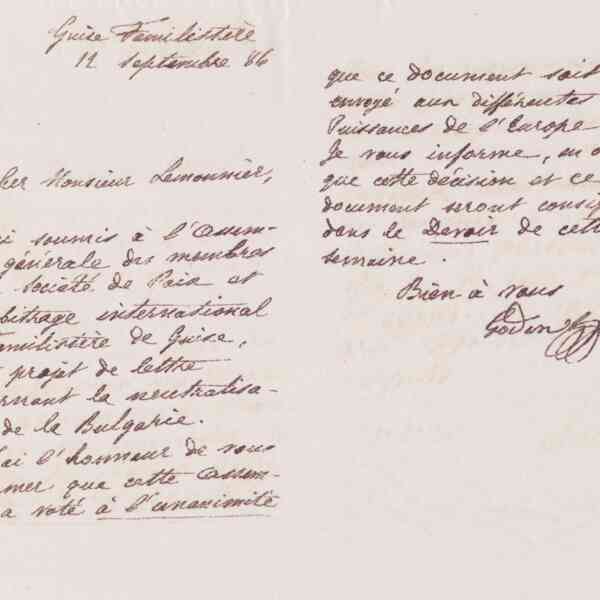 Guise Familistère
11 septembre 86
cher Monsieur Lemonnier,
ai soumis à l'Assem-
générale des membres
Société de Paix et
bitrage international
amilistère de Guise,
projet de lettre
ernant la neutralisa-
de la Bulgarie.
J'ai l'honneur de vous
mer que cette Assem-
a voté à l'unanimité
que ce document soit
envoyé aux différentes
Puissances de l'Europe
Je vous informe, en o
que cette décision et ce
document seront consig
dans le Devoir de cette
semaine.
Bien à vous
Godin